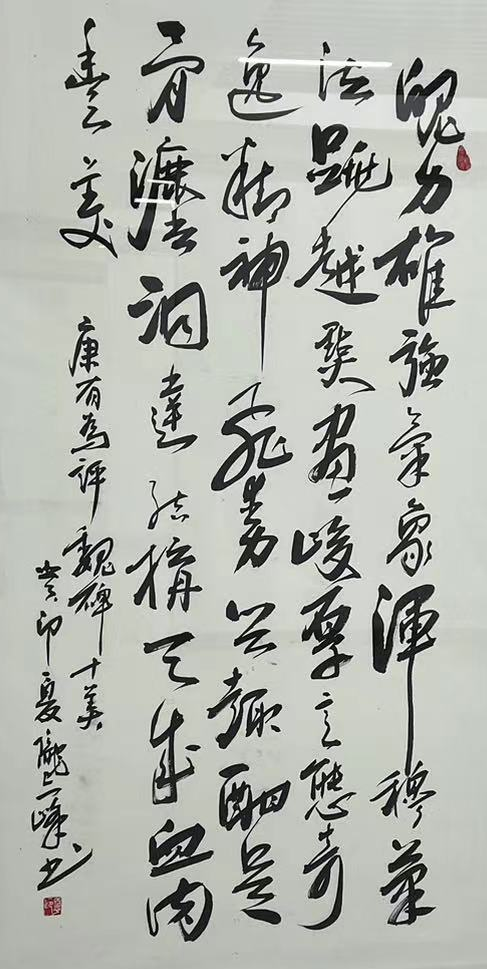 魄力雄強氣象渾穆筆
法跳越點畫峻厚意態奇
逸精神飛動興趣酣足
骨灋洞達結構天成血肉
豐美
康有為評魏碑十美
癸卯夏龐峰書